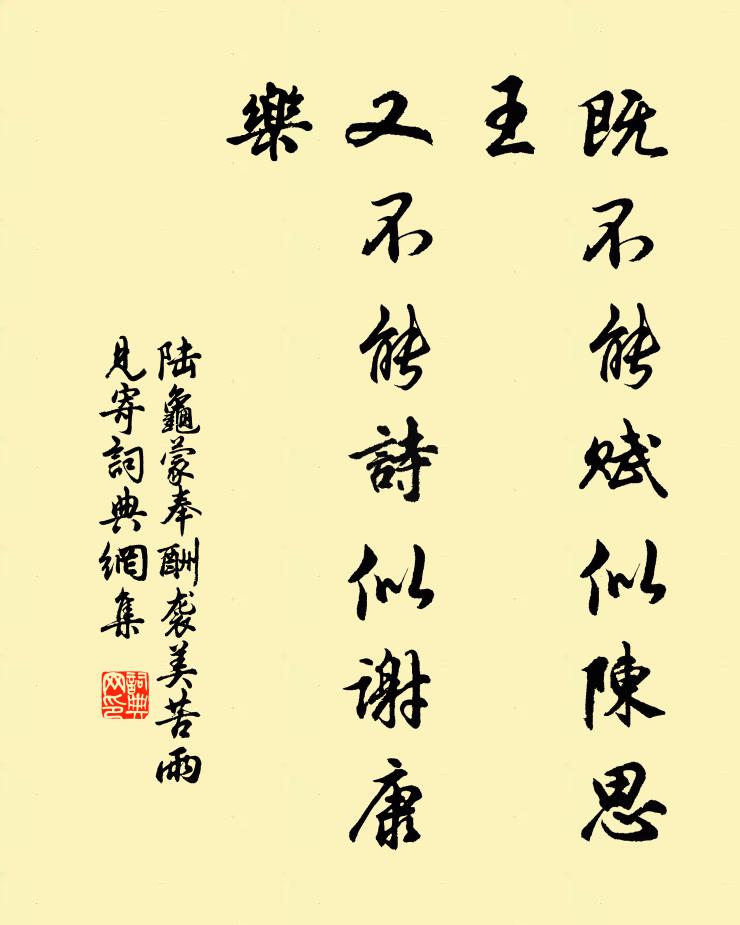 既不能赋似陳思
王
又不能詩似谢康
樂
陆龜蒙奉酬袭美苦雨
見寄詞典網集
詞典
网印